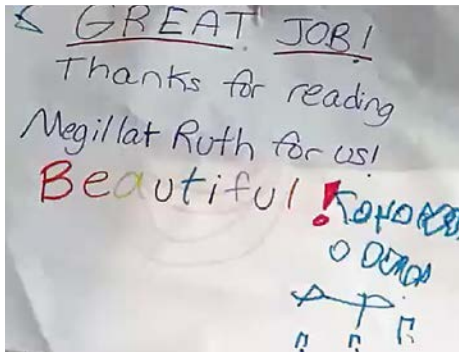 GREAT JOB!
Thanks for reading
Megillat Ruth for us!
Beautiful!